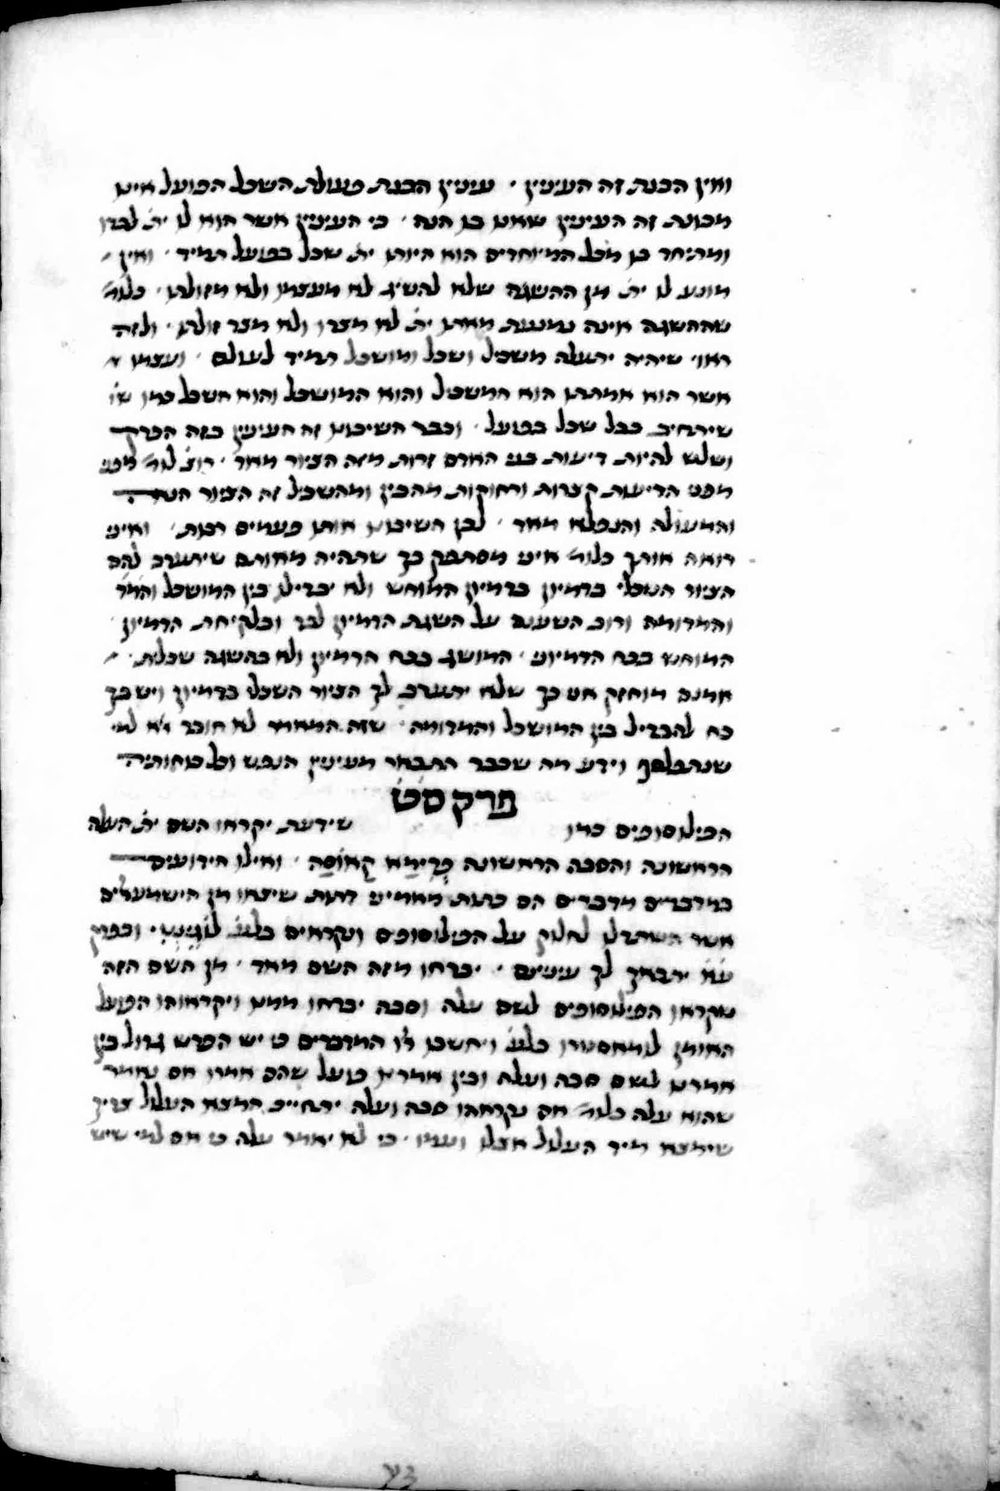 ואין הכונה זה הענין · ענין הכונה פעולת השכל הפועל אינו
מכונת זה הענין שאנו בו הנה · כי הענין אשר הוא לו ית׳ לבדו
ומתיחד בו מכל המיוחדים הוא היותו ית׳ שכל בפועל תמיד · ואין
מונע לו ית׳ מן ההשגה שלא להשיג לא מעצמו ולא מזולתו · כלומ׳
שההשגה אינה נמנעת מאתו ית׳ לא מצדו ולא מצד זולתו · ולזה
ראוי שיהיה יתעלה משכיל ושכל ומושכל תמיד לעולם · ועצמו
אשר הוא אמתתו הוא המשכיל והוא המושכל והוא השכל כמו
שיתחייב בכל שכל בפועל · וכבר השיבונו זה הענין בזה הפרק
ושלש להיות דיעות בני האדם זרות מזה הציור מאד · רוצ׳ לומ׳ לפני
מפני הדיעות קצרות ורחוקות מהבין ומהשכיל זה הציור
והמעולה והנפלא מאד · לכן השיבונו אותו פעמים רבות · ואיני
רואה אותך כלומ׳ איני מסתפק בך שתהיה מאותם שיתערב להם
הציור השכלי בדמיון בדמיון המוחש ולא יבדילו בין המושכל
והמדומה ורוב השענם על השגת הדמיון לבד ובלקיחת הדמיון
המוחש בכח הדמיוני · המושג בכח הדמיון ולא בהשגה שכלית ·
אמנם מוחזק אני בך שלא יתערב לך הציור השכלי בדמיון ויש בך
כח להבדיל בין המושכל והמדומה · שזה המאמר לא חובר אלא למי
שנתפלסף וידע מה שכבר התבאר מענין הנפש וכל כוחותיה
פרק סט
הפילוסופים כמו שידעת יקראו השם ית׳ העלה
הראשונה והסבה הראשונה פרימא קאוסה · ואילו הידועים
במדברים מדברים הם כתות מאמיני דתות שיצאו מן הישמעאלים
אשר השתדלו לחלוק על הפילוסופים ונקראים בלעז · ובפרק
יתבאר לך ענינם · יברחו מזה השם מאד · מן השם הזה
שקראו הפילוסופים לשם עלה וסבה יברחו ממנו ויקראוהו הפועל
האומן בלעז ויחשבו אלו המדברים כי יש הפרש גדול בין
אמרנו לשם סבה ועלה ובין אמרנו פועל שהם אמרו אם נאמר
שהוא עלה כלומ׳ אם נקראהו סבה ועלה יתחייב המצא העלול צריך
שימצא מיד העלול אצלו ועמו · כי לא יאמר עלה כי אם למי שיש